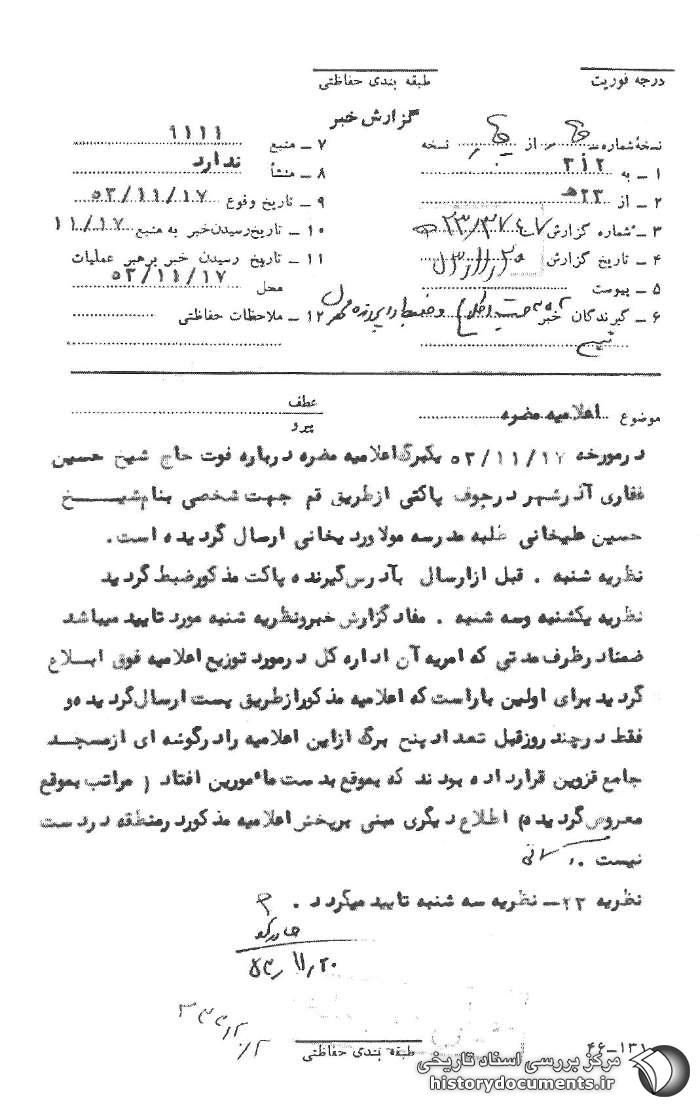 درجه فوریت
طبقه بندی حفاظتی
گزارش خبر
نسخهٔ شماره از نسخه
۱ ـ به ۲ ا ۳
۲ ـ از ۲۳ ه
۳ ـ شماره گزارش
۴ ـ تاریخ گزارش
۵ ـ پیوست
۶ ـ گیرندگان خبر
۷ ـ منبع ۹۱۱۱
۸ ـ منشأ ندارد
۹ ـ تاریخ وقوع ۵۳/۱۱/۱۷
۱۰ ـ تاریخ رسیدن خبر به منبع ۱۱/۱۷
۱۱ ـ تاریخ رسیدن خبر برهبر عملیات
محل ۵۳/۱۱/۱۷
۱۲ ـ ملاحظات حفاظتی
موضوع اعلامیه مضره
عطف
پیرو
درمورخه ۵۳/۱۱/۱۷ یکبرگ اعلامیه مضره درباره فوت حاج شیخ حسین
غفاری آذرشهر درجوف پاکتی ازطریق قم جهت شخصی بنام شیخ
حسین علیخانی طلبه مدرسه مولاوردیخانی ارسال گردیده است.
نظریه شنبه . قبل ازارسال بآدرس گیرنده پاکت مذکورضبط گردید
نظریه یکشنبه وسه شنبه . مفاد گزارش خبرونظریه شنبه مورد تایید میباشد
ضمناد رظرف مدتی که امریه آن اداره کل درمورد توزیع اعلامیه فوق ابلاغ
گردید برای اولین باراست که اعلامیه مذکورازطریق پست ارسال گردیده و
فقط درچند روزقبل تعداد پنج برگ ازاین اعلامیه رادرگوشه ای ازمسجد
جامع قزوین قرارداده بودند که بموقع بدست مأمورین افتاد و مراتب بموقع
معروض گردیده اطلاع دیگری مبنی برپخش اعلامیه مذکوردرمنطقه دردست
نیست .
نظریه ۲۳ ـ نظریه سه شنبه تایید میگردد .
۵۳/۱۱/۲۰
طبقه بندی حفاظتی
۴۶-۱۳۱
مرکز بررسی اسناد تاریخی
historydocuments.ir